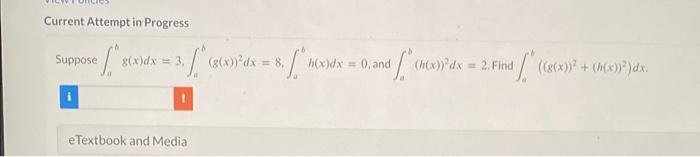 Current Attempt in Progress
Suppose ∫_a^b g(x)dx = 3, ∫_a^b (g(x))²dx = 8, ∫_a^b h(x)dx = 0, and ∫_a^b (h(x))²dx = 2. Find ∫_a^b ((g(x))² + (h(x))²)dx.
i !
eTextbook and Media